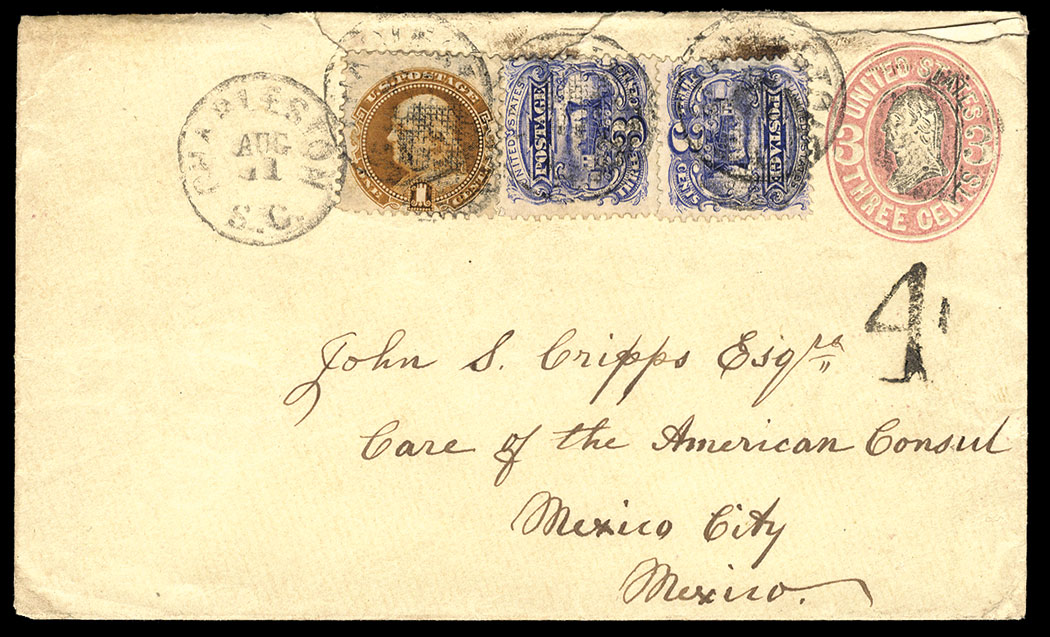 CHARLESTON
AUG
11
S.C.
U.S. POSTAGE
1
UNITED STATES
POSTAGE
3
THREE CENTS
UNITED STATES
POSTAGE
3
THREE CENTS
UNITED STATES
3 3
THREE CENTS
4
John S. Cripps Esqre
Care of the American Consul
Mexico City
Mexico.